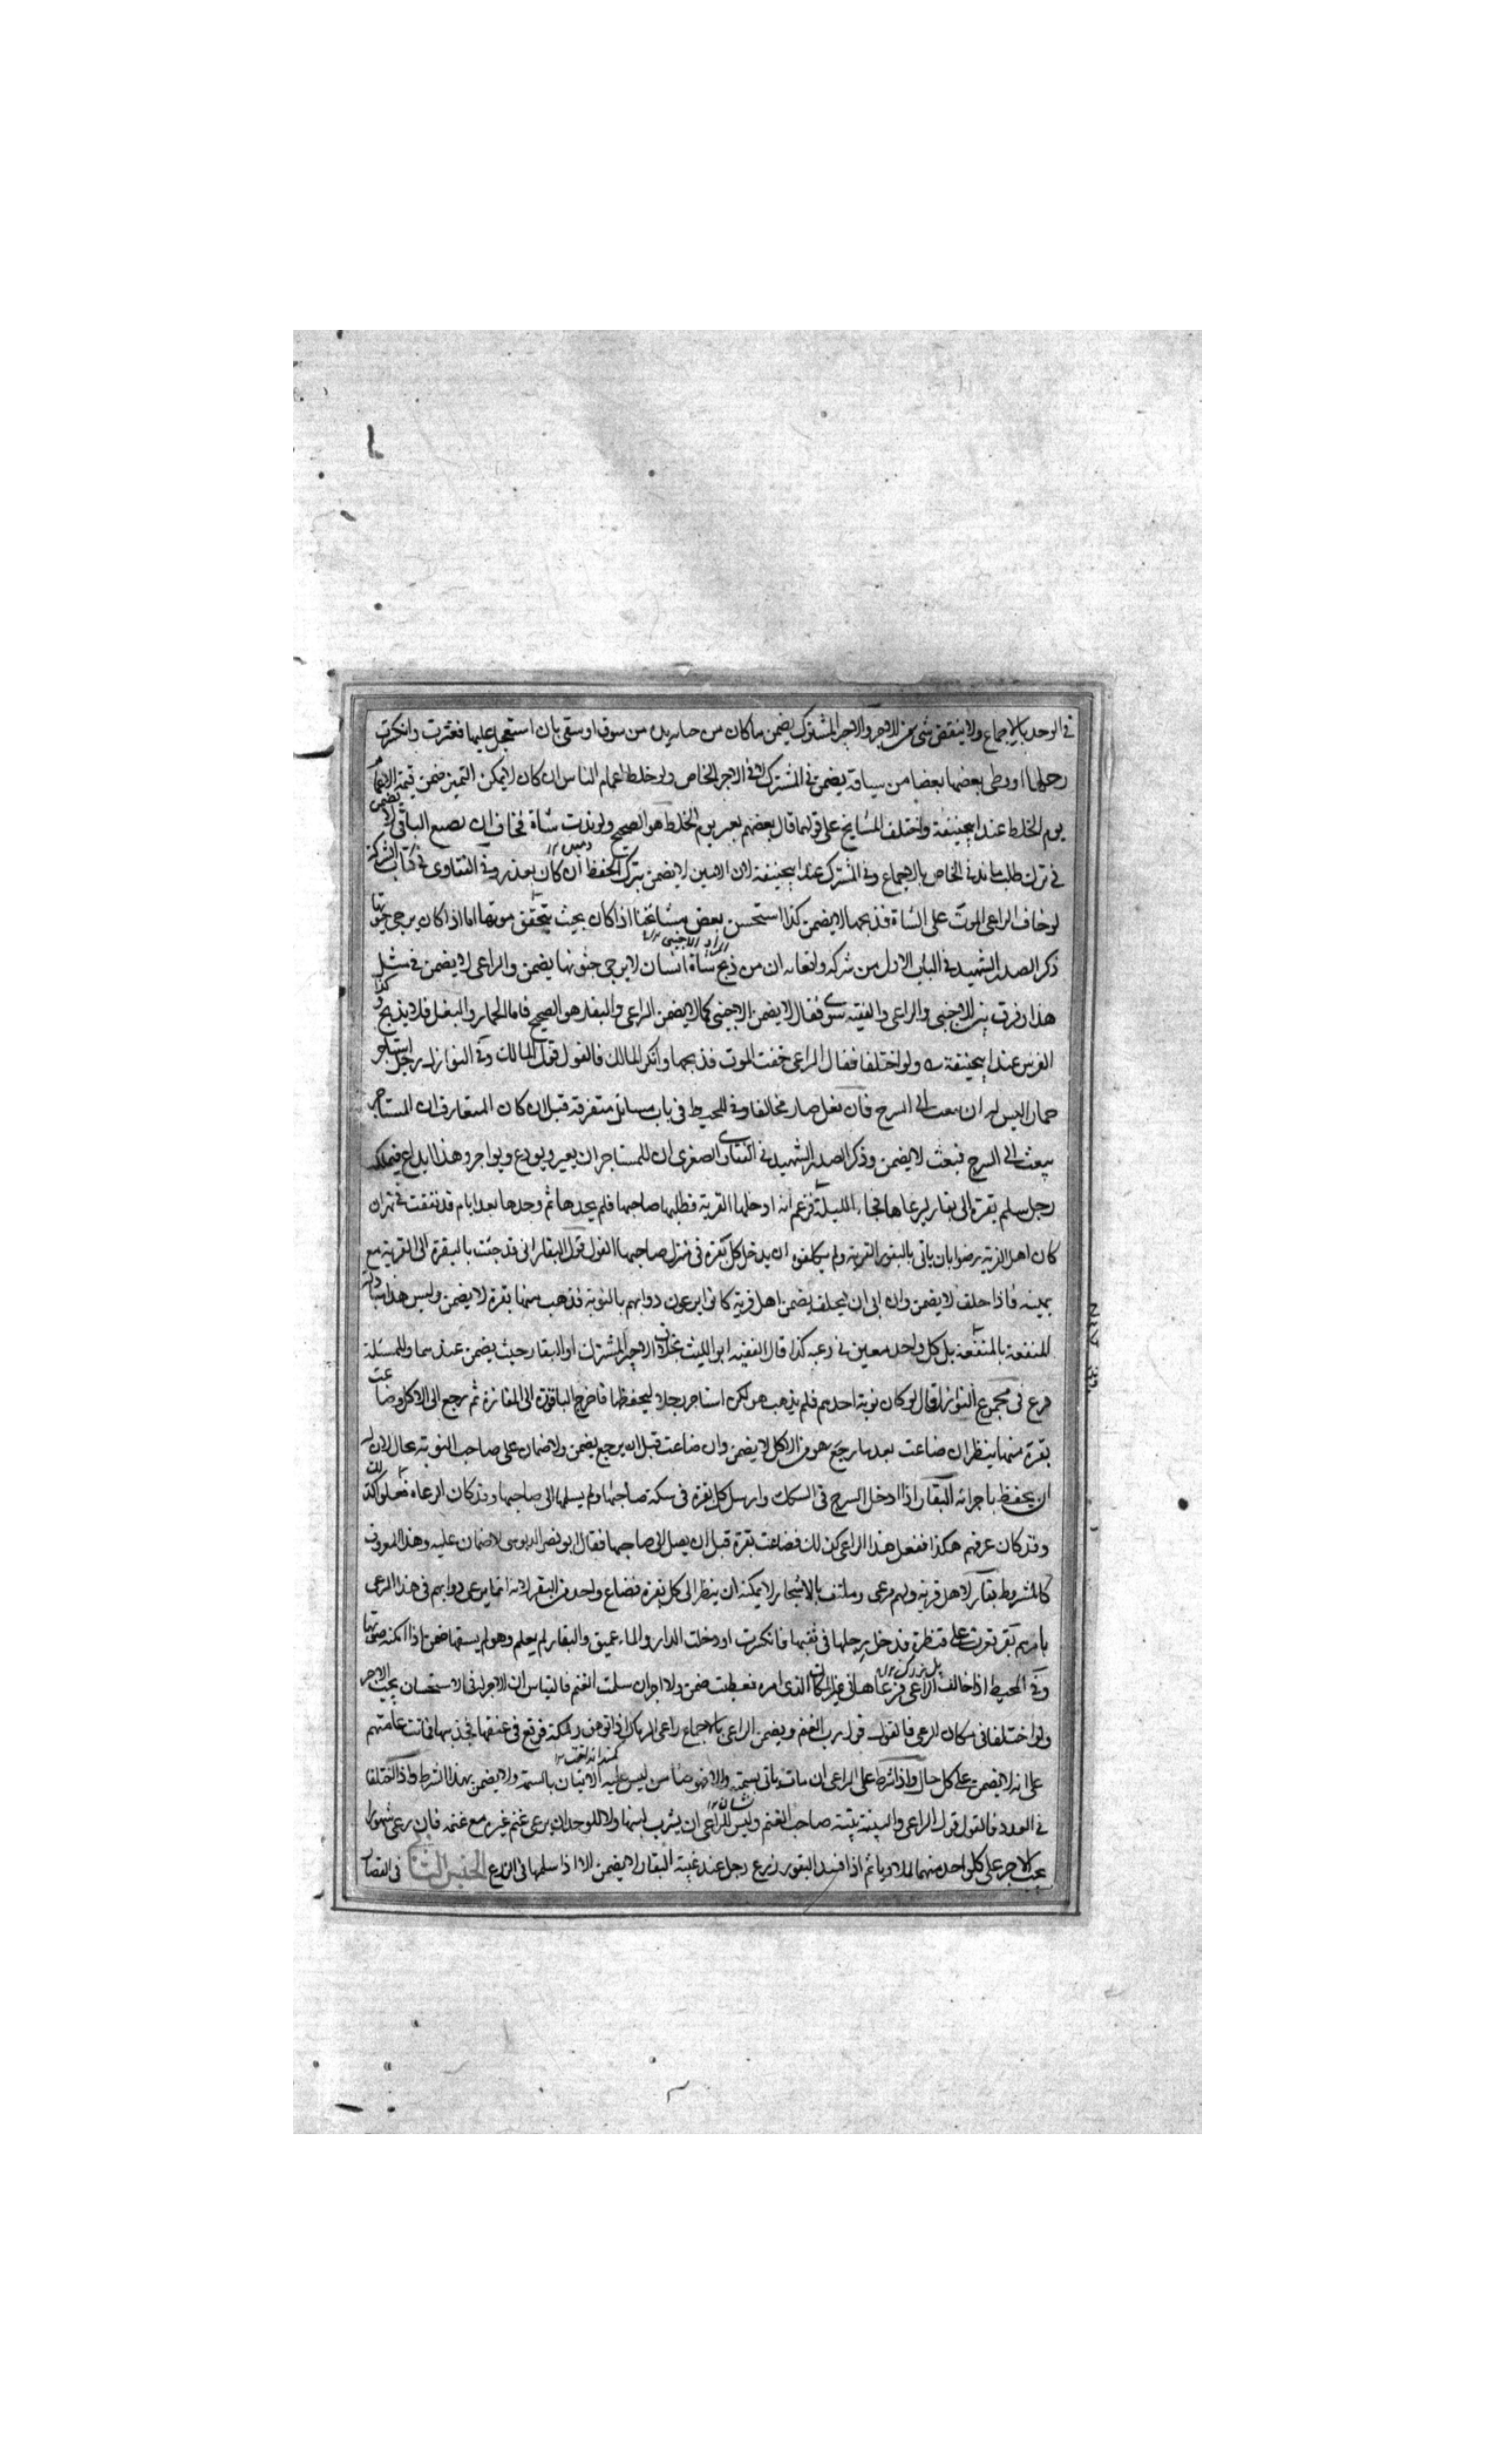 في الوحد بالاجماع ولا ينقض شي من الاجر والاجر المشترك يضمن ما كان من جنايه يده من سوق او سقي بان استعجل عليها فعثرت وانكرت
رجلها او وطى بعضها بعضا من سياقه يضمن في المشترك لا في الاجر الخاص ولو خلط اغنام الناس ان كان لا يمكن التميز ضمن قيمة الاغنام
يوم الخلط عند ابيحنيفة واختلف المشايخ على قولهما قال بعضهم يعبر يوم الخلط هو الصحيح ولو ندت شاة فخاف ان يضيع الباقي لا يضمن
في ترك طلب ما ند في الخاص بالاجماع وفي المشترك عند ابيحنيفة لان الامين لا يضمن بترك الحفظ ان كان بعذر وفي الفتاوى في كتاب الشركة
لو خاف الراعي الموت على الشاة فذبحها لا يضمن كذا استحسن بعض مشائخنا اذا كان بحيث يتحقق موتها اما اذا كان يرجى حيوتها
ذكر الصدر الشهيد في الباب الاول من شركة واقعاته ان من ذبح شاة انسان لا يرجى حيوتها يضمن والراعي لا يضمن في مثل
هذا وفرق بين الاجنبي والراعي والفقيه سوى فقال لا يضمن الاجنبي كما لا يضمن الراعي والبقار هو الصحيح فاما الحمار والبغل فلا يذبح وكذا
الفرس عند ابيحنيفة ولو اختلفا فقال الراعي خفت الموت فذبحها وانكر المالك فالقول قول المالك وفي النوازل رجل استاجر
حمارا ليس له ان يبعث الى السرح فان فعل صار مخالفا وفي المحيط في باب مسائل متفرقة قيل ان كان المتعارف ان المستاجر
يبعث الى السرح فبعث لا يضمن وذكر الصدر الشهيد في الفتاوى الصغرى ان للمستاجر ان يعير ويودع ويواجر وهذا ايداع فيملك
رجل سلم بقرة الى بقار ليرعاها فجاء الليلة فزعم انه ادخلها القرية فطلبها صاحبها فلم يجدها ثم وجدها بعد ايام قد نفقت في نهر ان
كان اهل القرية رضوا بان ياتي بالبقور القرية ولم يكلفوه ان يدخل كل بقرة في منزل صاحبها القول قول البقار اني قد جئت بالبقرة الى القرية مع
يمينه فاذا حلف لا يضمن وان ابى ان يحلف يضمن اهل قرية كانوا يرعون دوابهم بالنوبة فذهب منها بقرة لا يضمن وليس هذا مبادلة
المنفعة بالمنفعة بل كل واحد معين في رعيه كذا قال الفقيه ابو الليث بخلاف الاجير المشترك او البقار حيث يضمن عندهما وللمسئلة
فرع في مجموع النوازل قال لو كان نوبة احدهم فلم يذهب هو لكن استاجر رجلا ليحفظها فاخرج الباقورة الى المفازة ثم رجع الى الاكل وضاعت
بقرة منها ينظر ان ضاعت بعد ما رجع هو من الاكل لا يضمن وان ضاعت قبل ان يرجع يضمن ولا ضمان على صاحب النوبة بحال لان له
ان يحفظ باجرائه البقار اذا ادخل السرح في السكك وارسل كل بقرة في سكة صاحبها ولم يسلمها الى صاحبها وقد كان الرعاة فعلوا كذلك
وقد كان عرفهم هكذا ففعل هذا الراعي كذلك فضاعت بقرة قبل ان يصل الى صاحبها فقال ابو نصر الدبوسي لا ضمان عليه وهذا المعروف
كالمشروط بقار لاهل قرية ولهم مرعى وملتف بالاشجار لا يمكنه ان ينظر الى كل بقرة فضاع واحد من البقر لانه انما يرعى دوابهم في هذا المرعى
بامرهم بقر مرت على قنطرة فدخل رجلها في ثقبها فانكرت او دخلت الدار والماء عميق والبقار لم يعلم وهو لم يسقها ضمن اذا امكنه صوتها
وفي المحيط اذا خالف الراعي فرعاها في غير المكان الذي امره فعطبت ضمن ولا اجر ان سلمت الغنم فالقياس ان لا اجر له في الاستحسان يجب الاجر
ولو اختلفا في مكان الرعي فالقول قول رب الغنم ويضمن الراعي بالاجماع راعي الرماك اذا توهق رمكة فوقع في عنقها فجذبها فماتت عامتهم
على انه لا يضمن على كل حال واذا شرط على الراعي ان ما مات ياتي بسمته والا فهو ضامن ليس عليه الاتيان بالسمة ولا يضمن بهذا الشرط واذا اختلفا
في العدد فالقول قول الراعي والبينة بينة صاحب الغنم وليس للراعي ان يشرب لبنها ولا للوحد ان يرعى غنم غيره مع غنمه فان رعى شهورا
يجب الاجر على كل واحد منهما اذا افسد البقور زرع رجل عند غيبة البقار لا يضمن الا اذا سلمها في الزرع الجنس الثالث في القصار